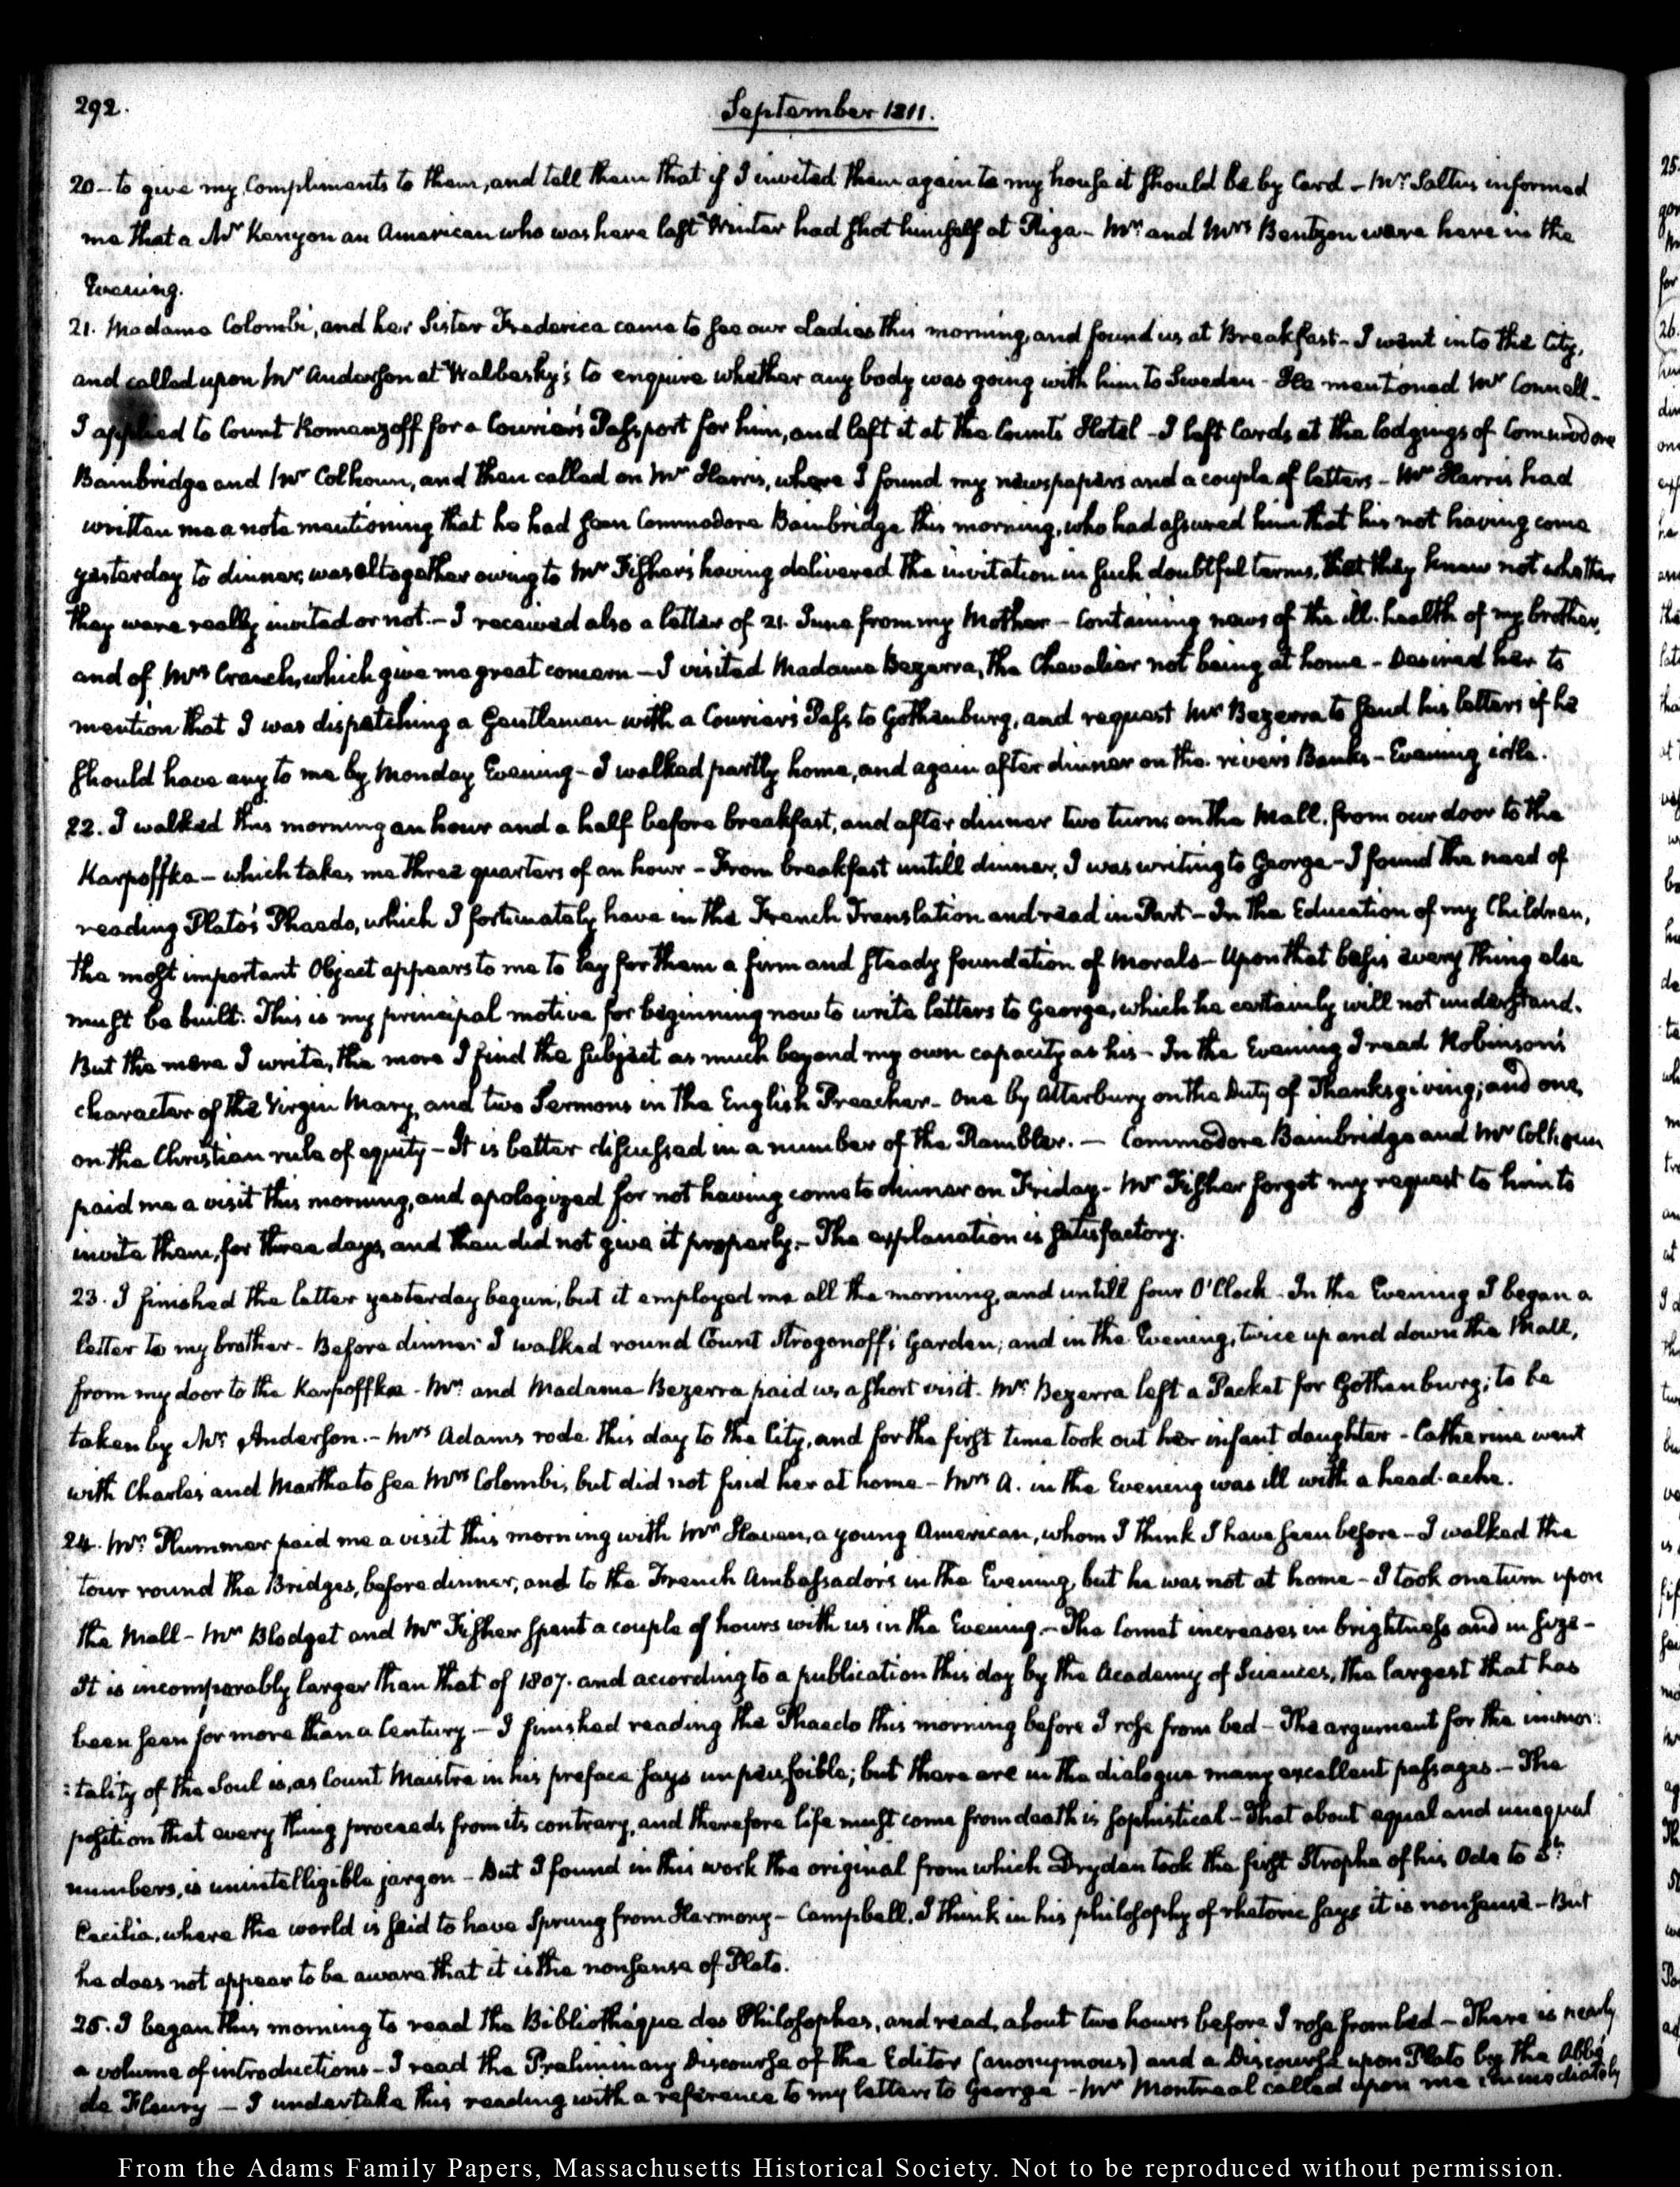 292.
September 1811.
20 - to give my Compliments to them, and tell them that if I invited them again to my house it should be by Card - Mr. Saltus informed
me that a Mr Kenyon an American who was here last Winter had shot himself at Riga - Mr. and Mrs Bentzon were here in the
Evening.
21. Madame Colombi, and her Sister Frederica came to see our Ladies this morning, and found us at Breakfast - I went into the City,
and called upon Mr Anderson at Walbesky's to enquire whether any body was going with him to Sweden - He mentioned Mr Connell.
I applied to Count Romanzoff for a Courier's Passport for him, and left it at the Counts Hotel - I left Cards at the lodgings of Commodore
Bainbridge and Mr Colhoun, and then called on Mr Harris, where I found my newspapers and a couple of letters - Mr Harris had
written me a note mentioning that he had seen Commodore Bainbridge this morning, who had assured him that his not having come
yesterday to dinner, was altogether owing to Mr Fisher's having delivered the invitation in such doubtful terms, that they knew not whether
they were really invited or not. - I received also a letter of 21. June from my Mother - Containing news of the ill-health of my brother,
and of Mrs Cranch, which give me great concern - I visited Madame Bezerra, the Chevalier not being at home - Desired her to
mention that I was dispatching a Gentleman with a Courier's Pass to Gothenburg, and request Mr Bezerra to send his letters if he
should have any to me by Monday Evening - I walked partly home, and again after dinner on the river's Banks - Evening idle.
22. I walked this morning an hour and a half before breakfast, and after dinner two turns on the Mall, from our door to the
Karpoffka - which takes me three quarters of an hour - From breakfast untill dinner, I was writing to George - I found the need of
reading Plato's Phaedo, which I fortunately have in the French Translation and read in Part - In the Education of my Children,
the most important Object appears to me to lay for them a firm and steady foundation of Morals - Upon that basis every thing else
must be built. This is my principal motive for beginning now to write letters to George, which he certainly will not understand.
But the more I write, the more I find the subject as much beyond my own capacity as his - In the Evening I read Robinson's
character of the Virgin Mary, and two Sermons in the English Preacher - One by Atterbury on the Duty of Thanksgiving; and one
on the Christian rule of equity - It is better discussed in a number of the Rambler. - Commodore Bainbridge and Mr Colhoun
paid me a visit this morning, and apologized for not having come to dinner on Friday - Mr Fisher forgot my request to him to
invite them, for three days, and then did not give it properly. - The explanation is satisfactory.
23. I finished the letter yesterday begun, but it employed me all the morning, and untill four O'Clock - In the Evening I began a
letter to my brother - Before dinner I walked round Count Strogonoff's Garden; and in the Evening, twice up and down the Mall,
from my door to the Karpoffka - Mr. and Madame Bezerra paid us a short visit. Mr. Bezerra left a Packet for Gothenburg; to be
taken by Mr. Anderson. - Mrs Adams rode this day to the City, and for the first time took out her infant daughter - Catherine went
with Charles and Martha to see Mrs Colombi, but did not find her at home - Mrs A. in the Evening was ill with a head-ache.
24. Mr. Plummer paid me a visit this morning with Mr Haven, a young American, whom I think I have seen before - I walked the
tour round the Bridges, before dinner, and to the French Ambassador's in the Evening, but he was not at home - I took one turn upon
the Mall - Mr Blodget and Mr Fisher spent a couple of hours with us in the Evening. - The Comet increases in brightness and in size -
It is incomparably larger than that of 1807. and according to a publication this day by the Academy of Sciences, the largest that has
been seen for more than a Century - I finished reading the Phaedo this morning before I rose from bed - The argument for the immor:
:tality of the Soul is, as Count Maistre in his preface says ; but there are in the dialogue many excellent passages. - The
position that every thing proceeds from its contrary, and therefore life must come from death is sophistical - That about equal and unequal
numbers, is unintelligible jargon - But I found in this work the original from which Dryden took the first Strophe of his Ode to St.
Cecilia, where the world is said to have Sprung from Harmony - Campbell, I think in his philosophy of rhetoric says it is nonsense - But
he does not appear to be aware that it is the nonsense of Plato.
25. I began this morning to read the Bibliothèque des Philosophes, and read, about two hours before I rose from bed - There is nearly
a volume of introductions - I read the Preliminary Discourse of the Editor (anonymous) and a Discourse upon Plato by the Abbé
de Fleury - I undertake this reading with a reference to my letters to George - Mr Montreal called upon me immediately
From the Adams Family Papers, Massachusetts Historical Society. Not to be reproduced without permission.